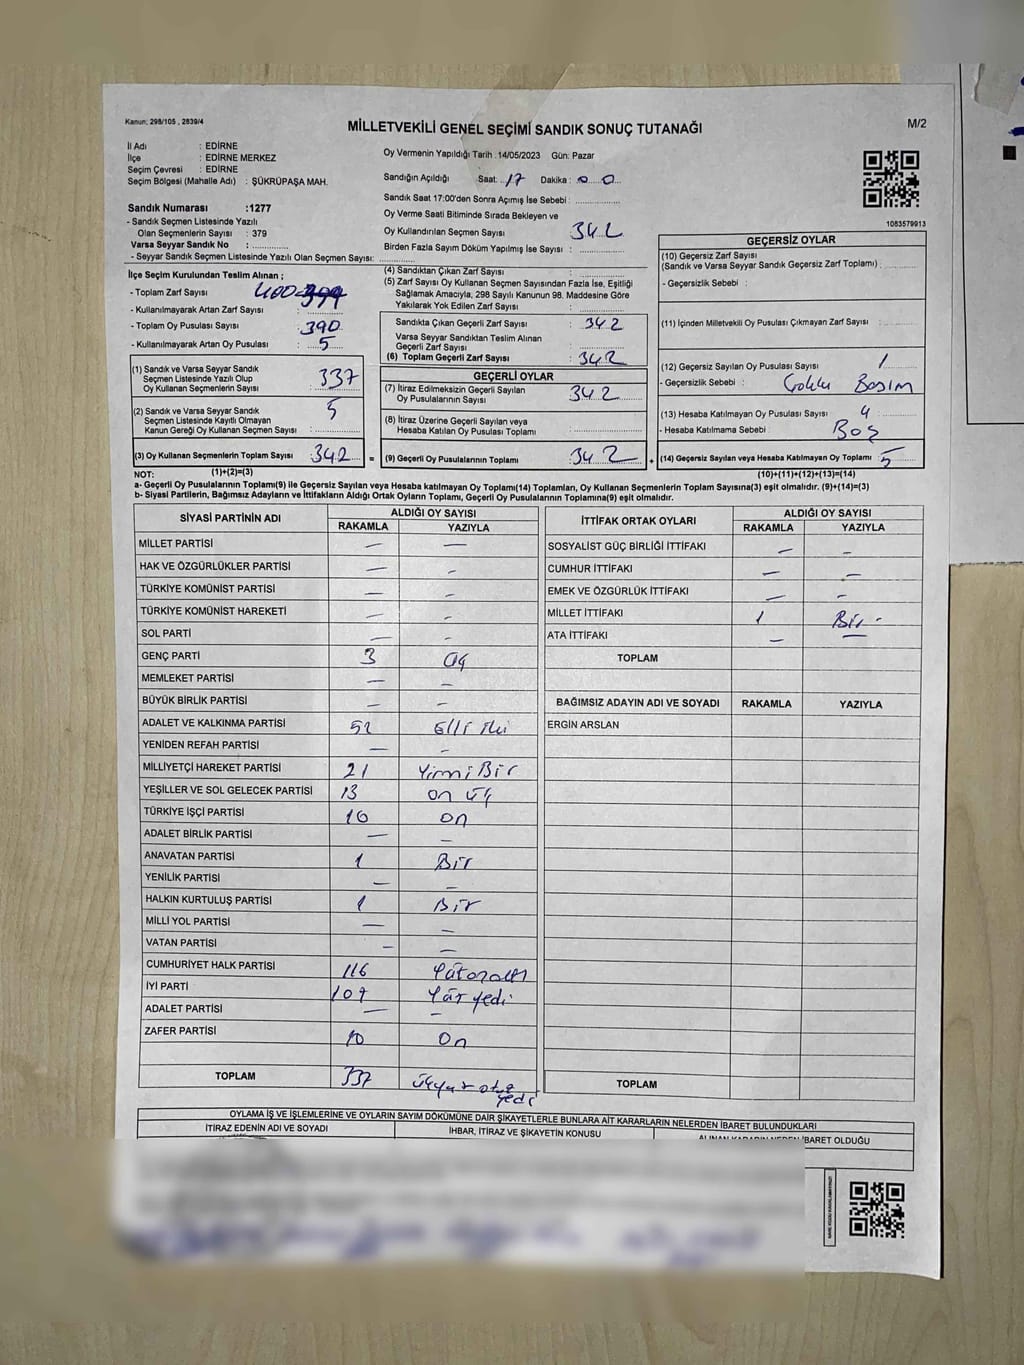 Kanun; 298/105 , 2839/4
MİLLETVEKİLİ GENEL SEÇİMİ SANDIK SONUÇ TUTANAĞI
M/2
İl Adı : EDİRNE
İlçe : EDİRNE MERKEZ
Seçim Çevresi : EDİRNE
Seçim Bölgesi (Mahalle Adı) : ŞÜKRÜPAŞA MAH.
Sandık Numarası :1277
- Sandık Seçmen Listesinde Yazılı
Olan Seçmenlerin Sayısı : 379
Varsa Seyyar Sandık No :
- Seyyar Sandık Seçmen Listesinde Yazılı Olan Seçmen Sayısı:
Oy Vermenin Yapıldığı Tarih :14/05/2023 Gün: Pazar
Sandığın Açıldığı Saat: 17 Dakika : 0 0
Sandık Saat 17:00'den Sonra Açımış İse Sebebi :
Oy Verme Saati Bitiminde Sırada Bekleyen ve
Oy Kullandırılan Seçmen Sayısı : 342
Birden Fazla Sayım Döküm Yapılmış İse Sayısı :
1083579913
İlçe Seçim Kurulundan Teslim Alınan ;
- Toplam Zarf Sayısı 400
- Kullanılmayarak Artan Zarf Sayısı :
- Toplam Oy Pusulası Sayısı : 390
- Kullanılmayarak Artan Oy Pusulası : 5
(1) Sandık ve Varsa Seyyar Sandık
Seçmen Listesinde Yazılı Olup
Oy Kullanan Seçmenlerin Sayısı : 337
(2) Sandık ve Varsa Seyyar Sandık
Seçmen Listesinde Kayıtlı Olmayan
Kanun Gereği Oy Kullanan Seçmen Sayısı : 5
(3) Oy Kullanan Seçmenlerin Toplam Sayısı : 342 =
(4) Sandıktan Çıkan Zarf Sayısı :
(5) Zarf Sayısı Oy Kullanan Seçmen Sayısından Fazla İse, Eşitliği
Sağlamak Amacıyla, 298 Sayılı Kanunun 98. Maddesine Göre
Yakılarak Yok Edilen Zarf Sayısı :
Sandıkta Çıkan Geçerli Zarf Sayısı : 342
Varsa Seyyar Sandıktan Teslim Alınan
Geçerli Zarf Sayısı :
(6) Toplam Geçerli Zarf Sayısı : 342
GEÇERLİ OYLAR
(7) İtiraz Edilmeksizin Geçerli Sayılan
Oy Pusulalarının Sayısı : 342
(8) İtiraz Üzerine Geçerli Sayılan veya
Hesaba Katılan Oy Pusulası Toplamı :
(9) Geçerli Oy Pusulalarının Toplamı : 342 +
GEÇERSİZ OYLAR
(10) Geçersiz Zarf Sayısı
(Sandık ve Varsa Seyyar Sandık Geçersiz Zarf Toplamı) :
- Geçersizlik Sebebi :
(11) İçinden Milletvekili Oy Pusulası Çıkmayan Zarf Sayısı :
(12) Geçersiz Sayılan Oy Pusulası Sayısı : 1
- Geçersizlik Sebebi : Çoklu Basım
(13) Hesaba Katılmayan Oy Pusulası Sayısı : 4
- Hesaba Katılmama Sebebi : Boş
(14) Geçersiz Sayılan veya Hesaba Katılmayan Oy Toplamı : 5
NOT: (1)+(2)=(3) (10)+(11)+(12)+(13)=(14)
a- Geçerli Oy Pusulalarının Toplamı(9) ile Geçersiz Sayılan veya Hesaba katılmayan Oy Toplamı(14) Toplamları, Oy Kullanan Seçmenlerin Toplam Sayısına(3) eşit olmalıdır. (9)+(14)=(3)
b- Siyasi Partilerin, Bağımsız Adayların ve İttifakların Aldığı Ortak Oyların Toplamı, Geçerli Oy Pusulalarının Toplamına(9) eşit olmalıdır.
SİYASİ PARTİNİN ADI ALDIĞI OY SAYISI
RAKAMLA YAZIYLA
MİLLET PARTİSİ — —
HAK VE ÖZGÜRLÜKLER PARTİSİ — -
TÜRKİYE KOMÜNİST PARTİSİ — -
TÜRKİYE KOMÜNİST HAREKETİ — -
SOL PARTİ — -
GENÇ PARTİ 3 Üç
MEMLEKET PARTİSİ — -
BÜYÜK BİRLİK PARTİSİ — -
ADALET VE KALKINMA PARTİSİ 52 Elli iki
YENİDEN REFAH PARTİSİ — -
MİLLİYETÇİ HAREKET PARTİSİ 21 Yirmi Bir
YEŞİLLER VE SOL GELECEK PARTİSİ 13 on üç
TÜRKİYE İŞÇİ PARTİSİ 10 on
ADALET BİRLİK PARTİSİ — -
ANAVATAN PARTİSİ 1 Bir
YENİLİK PARTİSİ — -
HALKIN KURTULUŞ PARTİSİ 1 Bir
MİLLİ YOL PARTİSİ — -
VATAN PARTİSİ - -
CUMHURİYET HALK PARTİSİ 116 Yüzonaltı
İYİ PARTİ 107 Yüz yedi
ADALET PARTİSİ — -
ZAFER PARTİSİ 10 On
TOPLAM 337 Üçyüz otuz
yedi
İTTİFAK ORTAK OYLARI ALDIĞI OY SAYISI
RAKAMLA YAZIYLA
SOSYALİST GÜÇ BİRLİĞİ İTTİFAKI — -
CUMHUR İTTİFAKI — -
EMEK VE ÖZGÜRLÜK İTTİFAKI — -
MİLLET İTTİFAKI 1 Bir
ATA İTTİFAKI — —
TOPLAM
BAĞIMSIZ ADAYIN ADI VE SOYADI RAKAMLA YAZIYLA
ERGİN ARSLAN
TOPLAM
OYLAMA İŞ VE İŞLEMLERİNE VE OYLARIN SAYIM DÖKÜMÜNE DAİR ŞİKAYETLERLE BUNLARA AİT KARARLARIN NELERDEN İBARET BULUNDUKLARI
İTİRAZ EDENİN ADI VE SOYADI İHBAR, İTİRAZ VE ŞİKAYETİN KONUSU ALINAN KARARIN NEDEN İBARET OLDUĞU